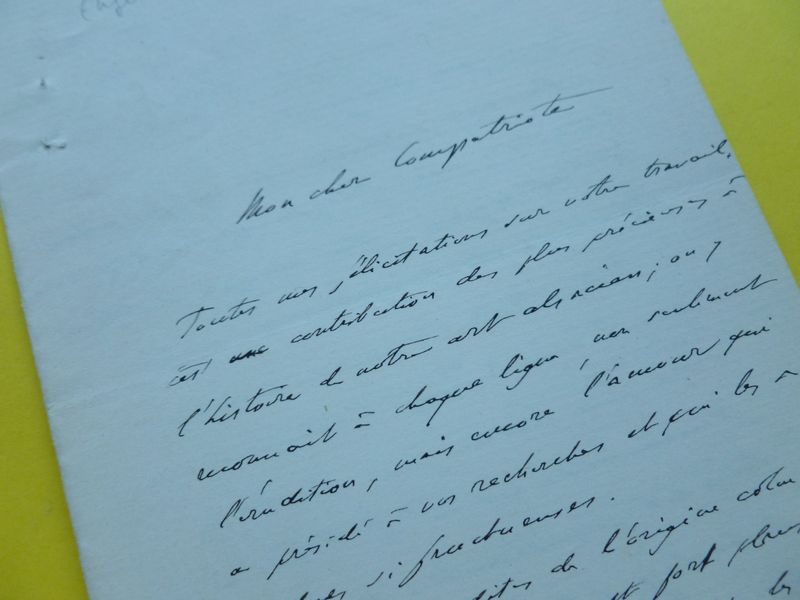 Mon cher Compatriote
Toutes mes félicitations sur votre travail,
c'est une contribution des plus précieuses à
l'histoire de notre art alsacien; on y
reconnait à chaque ligne, non seulement
l'érudition, mais encore l'amour qui
a présidé à vos recherches et qui les a
si fructueuses.
de l'origine
fort plus
les